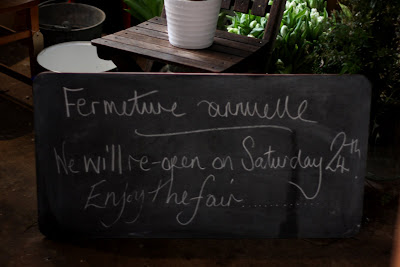 Fermeture annuelle
We will re-open on Saturday 24th
Enjoy the fair..............